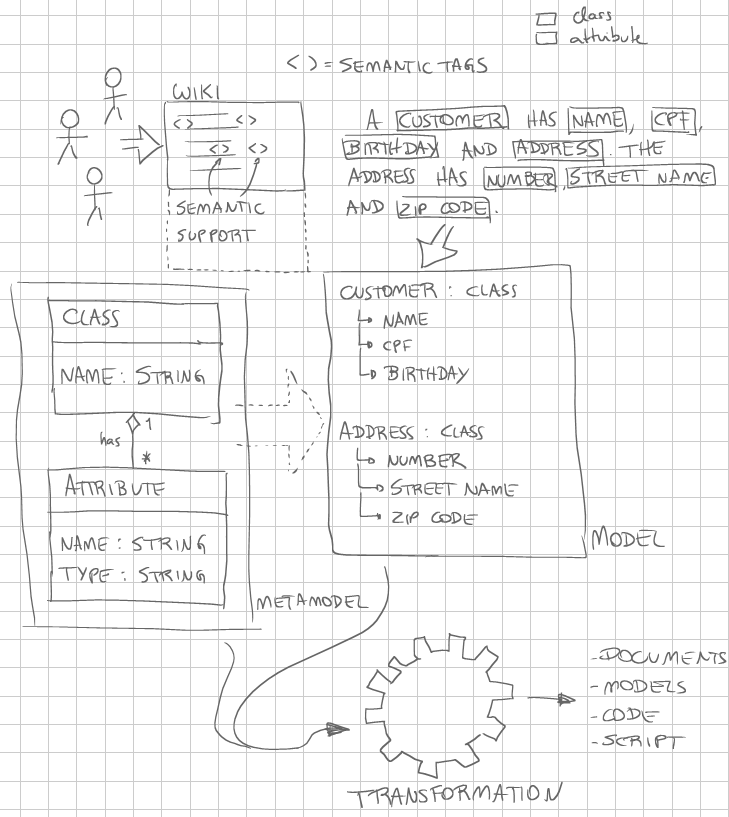 class
attribute
<> = SEMANTIC TAGS
WIKI
<> <>
<> <>
SEMANTIC
SUPPORT
A CUSTOMER HAS NAME, CPF,
BIRTHDAY AND ADDRESS. THE
ADDRESS HAS NUMBER, STREET NAME
AND ZIP CODE.
CLASS
NAME: STRING
1
has
*
ATTRIBUTE
NAME: STRING
TYPE: STRING
METAMODEL
CUSTOMER: CLASS
NAME
CPF
BIRTHDAY
ADDRESS: CLASS
NUMBER
STREET NAME
ZIP CODE
MODEL
TRANSFORMATION
-DOCUMENTS
-MODELS
-CODE
-SCRIPT